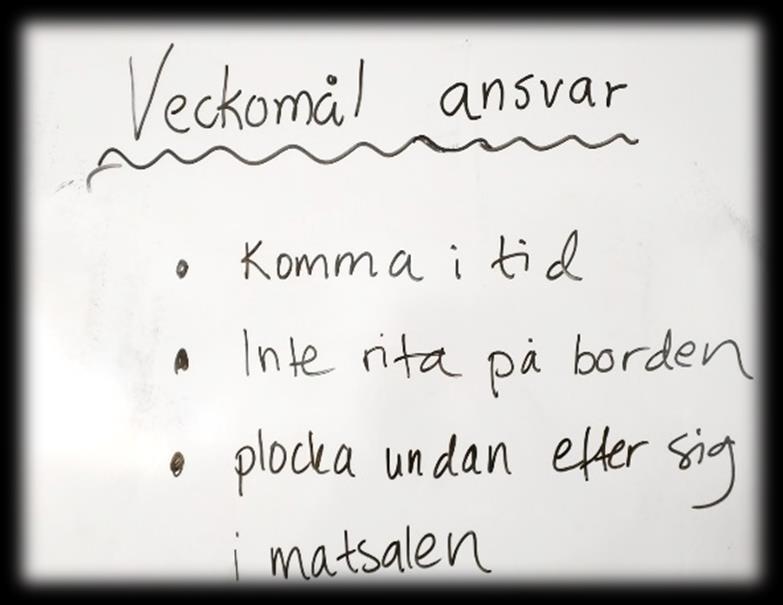 Veckomål ansvar
• Komma i tid
• Inte rita på borden
• plocka undan efter sig
i matsalen